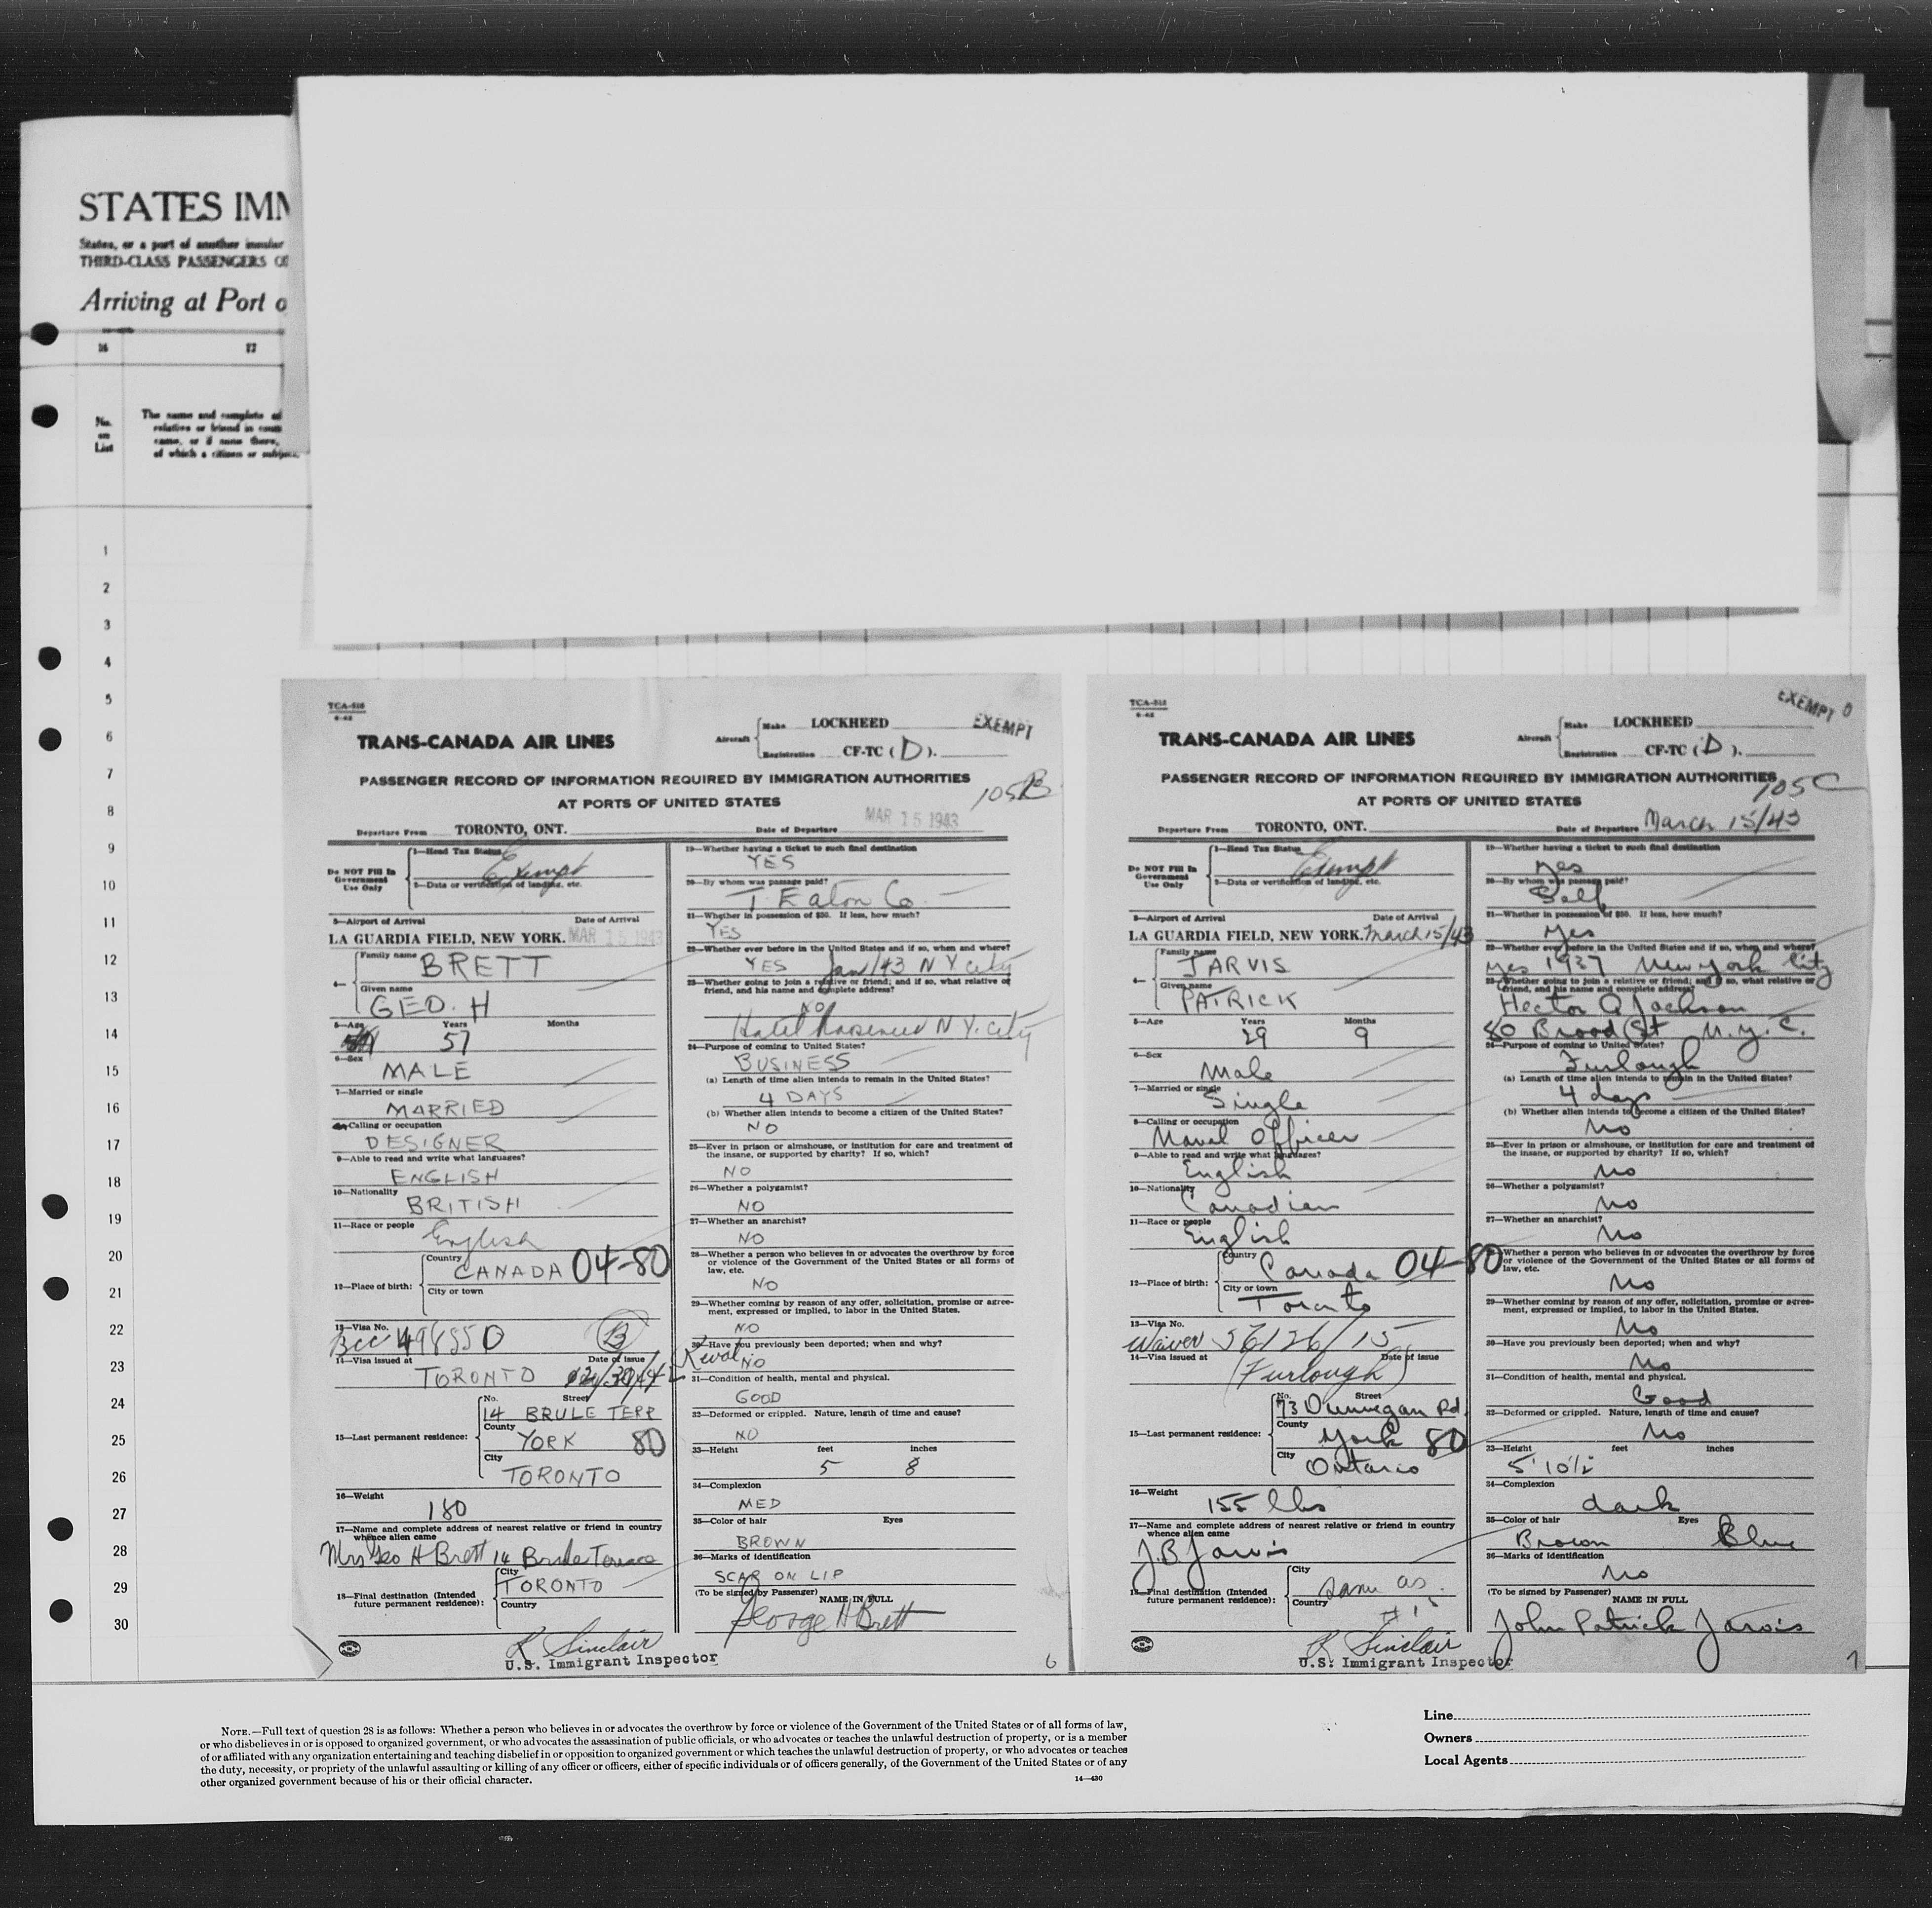 STATES IMM
States, or a part of another insular
THIRD-CLASS PASSENGERS
Arriving at Port o
16 17
No. on List
The name and complete ad
relative or friend in coun
came, or if none there,
of which a citizen or subject,
1
2
3
4
5
6
7
8
9
10
11
12
13
14
15
16
17
18
19
20
21
22
23
24
25
26
27
28
29
30
TCA-515
6-42
TRANS-CANADA AIR LINES
Aircraft
Make LOCKHEED
Registration CF-TC (D).
EXEMPT
PASSENGER RECORD OF INFORMATION REQUIRED BY IMMIGRATION AUTHORITIES
AT PORTS OF UNITED STATES
105B
Departure From TORONTO, ONT. Date of Departure MAR 15 1943
Do NOT Fill In
Government
Use Only
1—Head Tax Status
Exempt
2—Data or verification of landing, etc.
3—Airport of Arrival Date of Arrival
LA GUARDIA FIELD, NEW YORK. MAR 15 1943
4—
Family name BRETT
Given name
GEO. H
5—Age Years Months
57
6—Sex
MALE
7—Married or single
MARRIED
8—Calling or occupation
DESIGNER
9—Able to read and write what languages?
ENGLISH
10—Nationality
BRITISH
11—Race or people
English
12—Place of birth:
Country
CANADA 04-80
City or town
13—Visa No.
BCC 498550 B
14—Visa issued at Date of issue
TORONTO 12/30/42
15—Last permanent residence:
No. Street
14 BRULE TERR
County
YORK 80
City
TORONTO
16—Weight
180
17—Name and complete address of nearest relative or friend in country
whence alien came
Mrs Geo H Brett 14 Brule Terrace
18—Final destination (Intended
future permanent residence):
City
TORONTO
Country
R Sinclair
U.S. Immigrant Inspector
19—Whether having a ticket to such final destination
YES
20—By whom was passage paid?
T. Eaton Co
21—Whether in possession of $50. If less, how much?
YES
22—Whether ever before in the United States and if so, when and where?
YES Jan/43 N Y City
23—Whether going to join a relative or friend; and if so, what relative or
friend, and his name and complete address?
NO
Hotel N Y. City
24—Purpose of coming to United States?
BUSINESS
(a) Length of time alien intends to remain in the United States?
4 DAYS
(b) Whether alien intends to become a citizen of the United States?
NO
25—Ever in prison or almshouse, or institution for care and treatment of
the insane, or supported by charity? If so, which?
NO
26—Whether a polygamist?
NO
27—Whether an anarchist?
NO
28—Whether a person who believes in or advocates the overthrow by force
or violence of the Government of the United States or all forms of
law, etc.
NO
29—Whether coming by reason of any offer, solicitation, promise or agree-
ment, expressed or implied, to labor in the United States.
NO
30—Have you previously been deported; when and why?
NO
31—Condition of health, mental and physical.
GOOD
32—Deformed or crippled. Nature, length of time and cause?
NO
33—Height feet inches
5 8
34—Complexion
MED
35—Color of hair Eyes
BROWN
36—Marks of identification
SCAR ON LIP
(To be signed by Passenger) NAME IN FULL
George H Brett
6
TCA-515
6-42
TRANS-CANADA AIR LINES
Aircraft
Make LOCKHEED
Registration CF-TC (D).
EXEMPT
PASSENGER RECORD OF INFORMATION REQUIRED BY IMMIGRATION AUTHORITIES
AT PORTS OF UNITED STATES
105C
Departure From TORONTO, ONT. Date of Departure March 15/43
Do NOT Fill In
Government
Use Only
1—Head Tax Status
Exempt
2—Data or verification of landing, etc.
3—Airport of Arrival Date of Arrival
LA GUARDIA FIELD, NEW YORK. March 15/43
4—
Family name
JARVIS
Given name
PATRICK
5—Age Years Months
29 9
6—Sex
Male
7—Married or single
Single
8—Calling or occupation
Naval Officer
9—Able to read and write what languages?
English
10—Nationality
Canadian
11—Race or people
English
12—Place of birth:
Country
Canada 04-80
City or town
Toronto
13—Visa No.
Waiver 56126/15
14—Visa issued at Date of issue
(Furlough)
15—Last permanent residence:
No. Street
73 Dunvegan Rd.
County
York 80
City
Ontario
16—Weight
155 lbs
17—Name and complete address of nearest relative or friend in country
whence alien came
J.B. Jarvis
18—Final destination (Intended
future permanent residence):
City
same as
Country
# 15
R Sinclair
U.S. Immigrant Inspector
19—Whether having a ticket to such final destination
Yes
20—By whom was passage paid?
Self
21—Whether in possession of $50. If less, how much?
Yes
22—Whether ever before in the United States and if so, when and where?
Yes 1937 New York City
23—Whether going to join a relative or friend; and if so, what relative or
friend, and his name and complete address?
Hector Jackson
80 Broad St N.Y.C.
24—Purpose of coming to United States?
Furlough
(a) Length of time alien intends to remain in the United States?
4 days
(b) Whether alien intends to become a citizen of the United States?
No
25—Ever in prison or almshouse, or institution for care and treatment of
the insane, or supported by charity? If so, which?
No
26—Whether a polygamist?
No
27—Whether an anarchist?
No
28—Whether a person who believes in or advocates the overthrow by force
or violence of the Government of the United States or all forms of
law, etc.
No
29—Whether coming by reason of any offer, solicitation, promise or agree-
ment, expressed or implied, to labor in the United States.
No
30—Have you previously been deported; when and why?
No
31—Condition of health, mental and physical.
Good
32—Deformed or crippled. Nature, length of time and cause?
No
33—Height feet inches
5' 10½
34—Complexion
dark
35—Color of hair Eyes
Brown Blue
36—Marks of identification
No
(To be signed by Passenger)
NAME IN FULL
John Patrick Jarvis
7
NOTE.—Full text of question 28 is as follows: Whether a person who believes in or advocates the overthrow by force or violence of the Government of the United States or of all forms of law,
or who disbelieves in or is opposed to organized government, or who advocates the assassination of public officials, or who advocates or teaches the unlawful destruction of property, or is a member
of or affiliated with any organization entertaining and teaching disbelief in or opposition to organized government or which teaches the unlawful destruction of property, or who advocates or teaches
the duty, necessity, or propriety of the unlawful assaulting or killing of any officer or officers, either of specific individuals or of officers generally, of the Government of the United States or of any
other organized government because of his or their official character.
14—430
Line
Owners
Local Agents